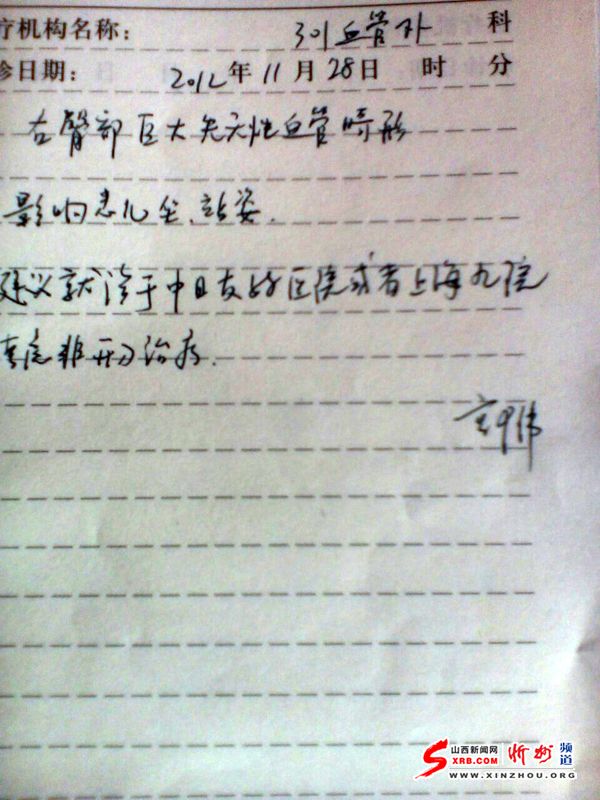 疗机构名称： 301血管外 科
诊日期： 2012年11月28日 时 分
右臀部巨大先天性血管畸形
影响患儿坐、站姿.
建议就诊于中日友好医院或者上海九院
院非 治疗.
山西新闻网 忻州 频道
SXRB.COM
WWW.XINZHOU.ORG